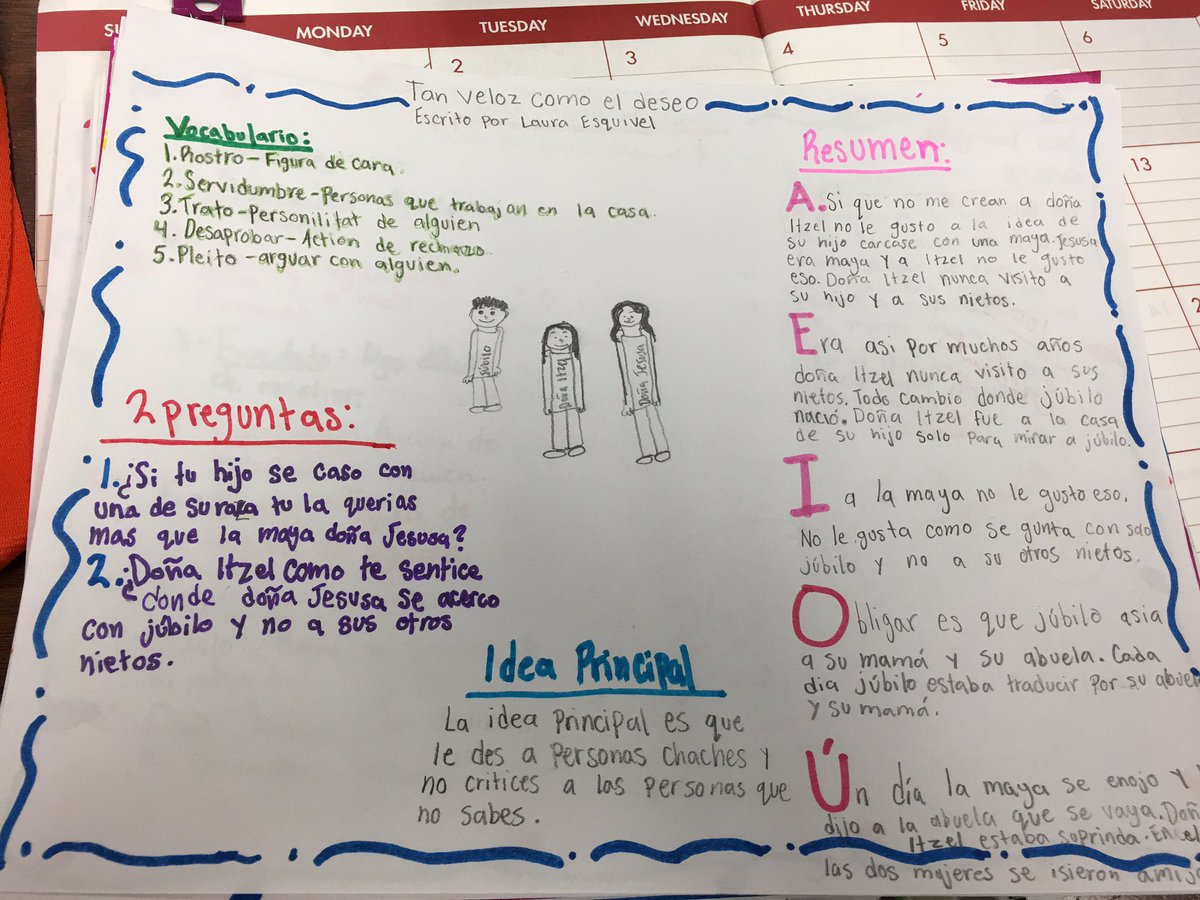 MONDAY
TUESDAY
WEDNESDAY
THURSDAY
FRIDAY
SATURDAY
2
3
4
5
6
13
Tan veloz como el deseo
Escrito por Laura Esquivel
Vocabulario:
1. Rostro - Figura de cara.
2. Servidumbre - Personas que trabajan en la casa.
3. Trato - Personilitat de alguien
4. Desaprobar - Action de rechazo.
5. Pleito - arguar con alguien.
Júbilo
Doña Itzel
Doña Jesusa
2 preguntas:
1. ¿Si tu hijo se caso con
una de su raza tu la querias
mas que la maya doña Jesusa?
2. ¿Doña Itzel como te sentice
donde doña Jesusa se acerco
con júbilo y no a sus otros
nietos.
Idea Principal
La idea principal es que
le des a personas chaches y
no critices a las personas que
no sabes.
Resumen:
A. Si que no me crean a doña
Itzel no le gusto a la idea de
su hijo carcase con una maya. Jesusa
era maya y a Itzel no le gusto
eso. Doña Itzel nunca visito a
su hijo y a sus nietos.
Era asi por muchos años
doña Itzel nunca visito a sus
nietos. Todo cambio donde júbilo
nació. Doña Itzel fue a la casa
de su hijo solo para mirar a júbilo.
I a la maya no le gusto eso.
No le gusta como se gunta con solo
júbilo y no a su otros nietos.
Obligar es que júbilo asia
a su mamá y su abuela. Cada
dia júbilo estaba traducir por su
y su mamá.
Ún día la maya se enojo y
dijo a la abuela que se vaya.
Itzel estaba suprinda.
las dos mujeres se isieron